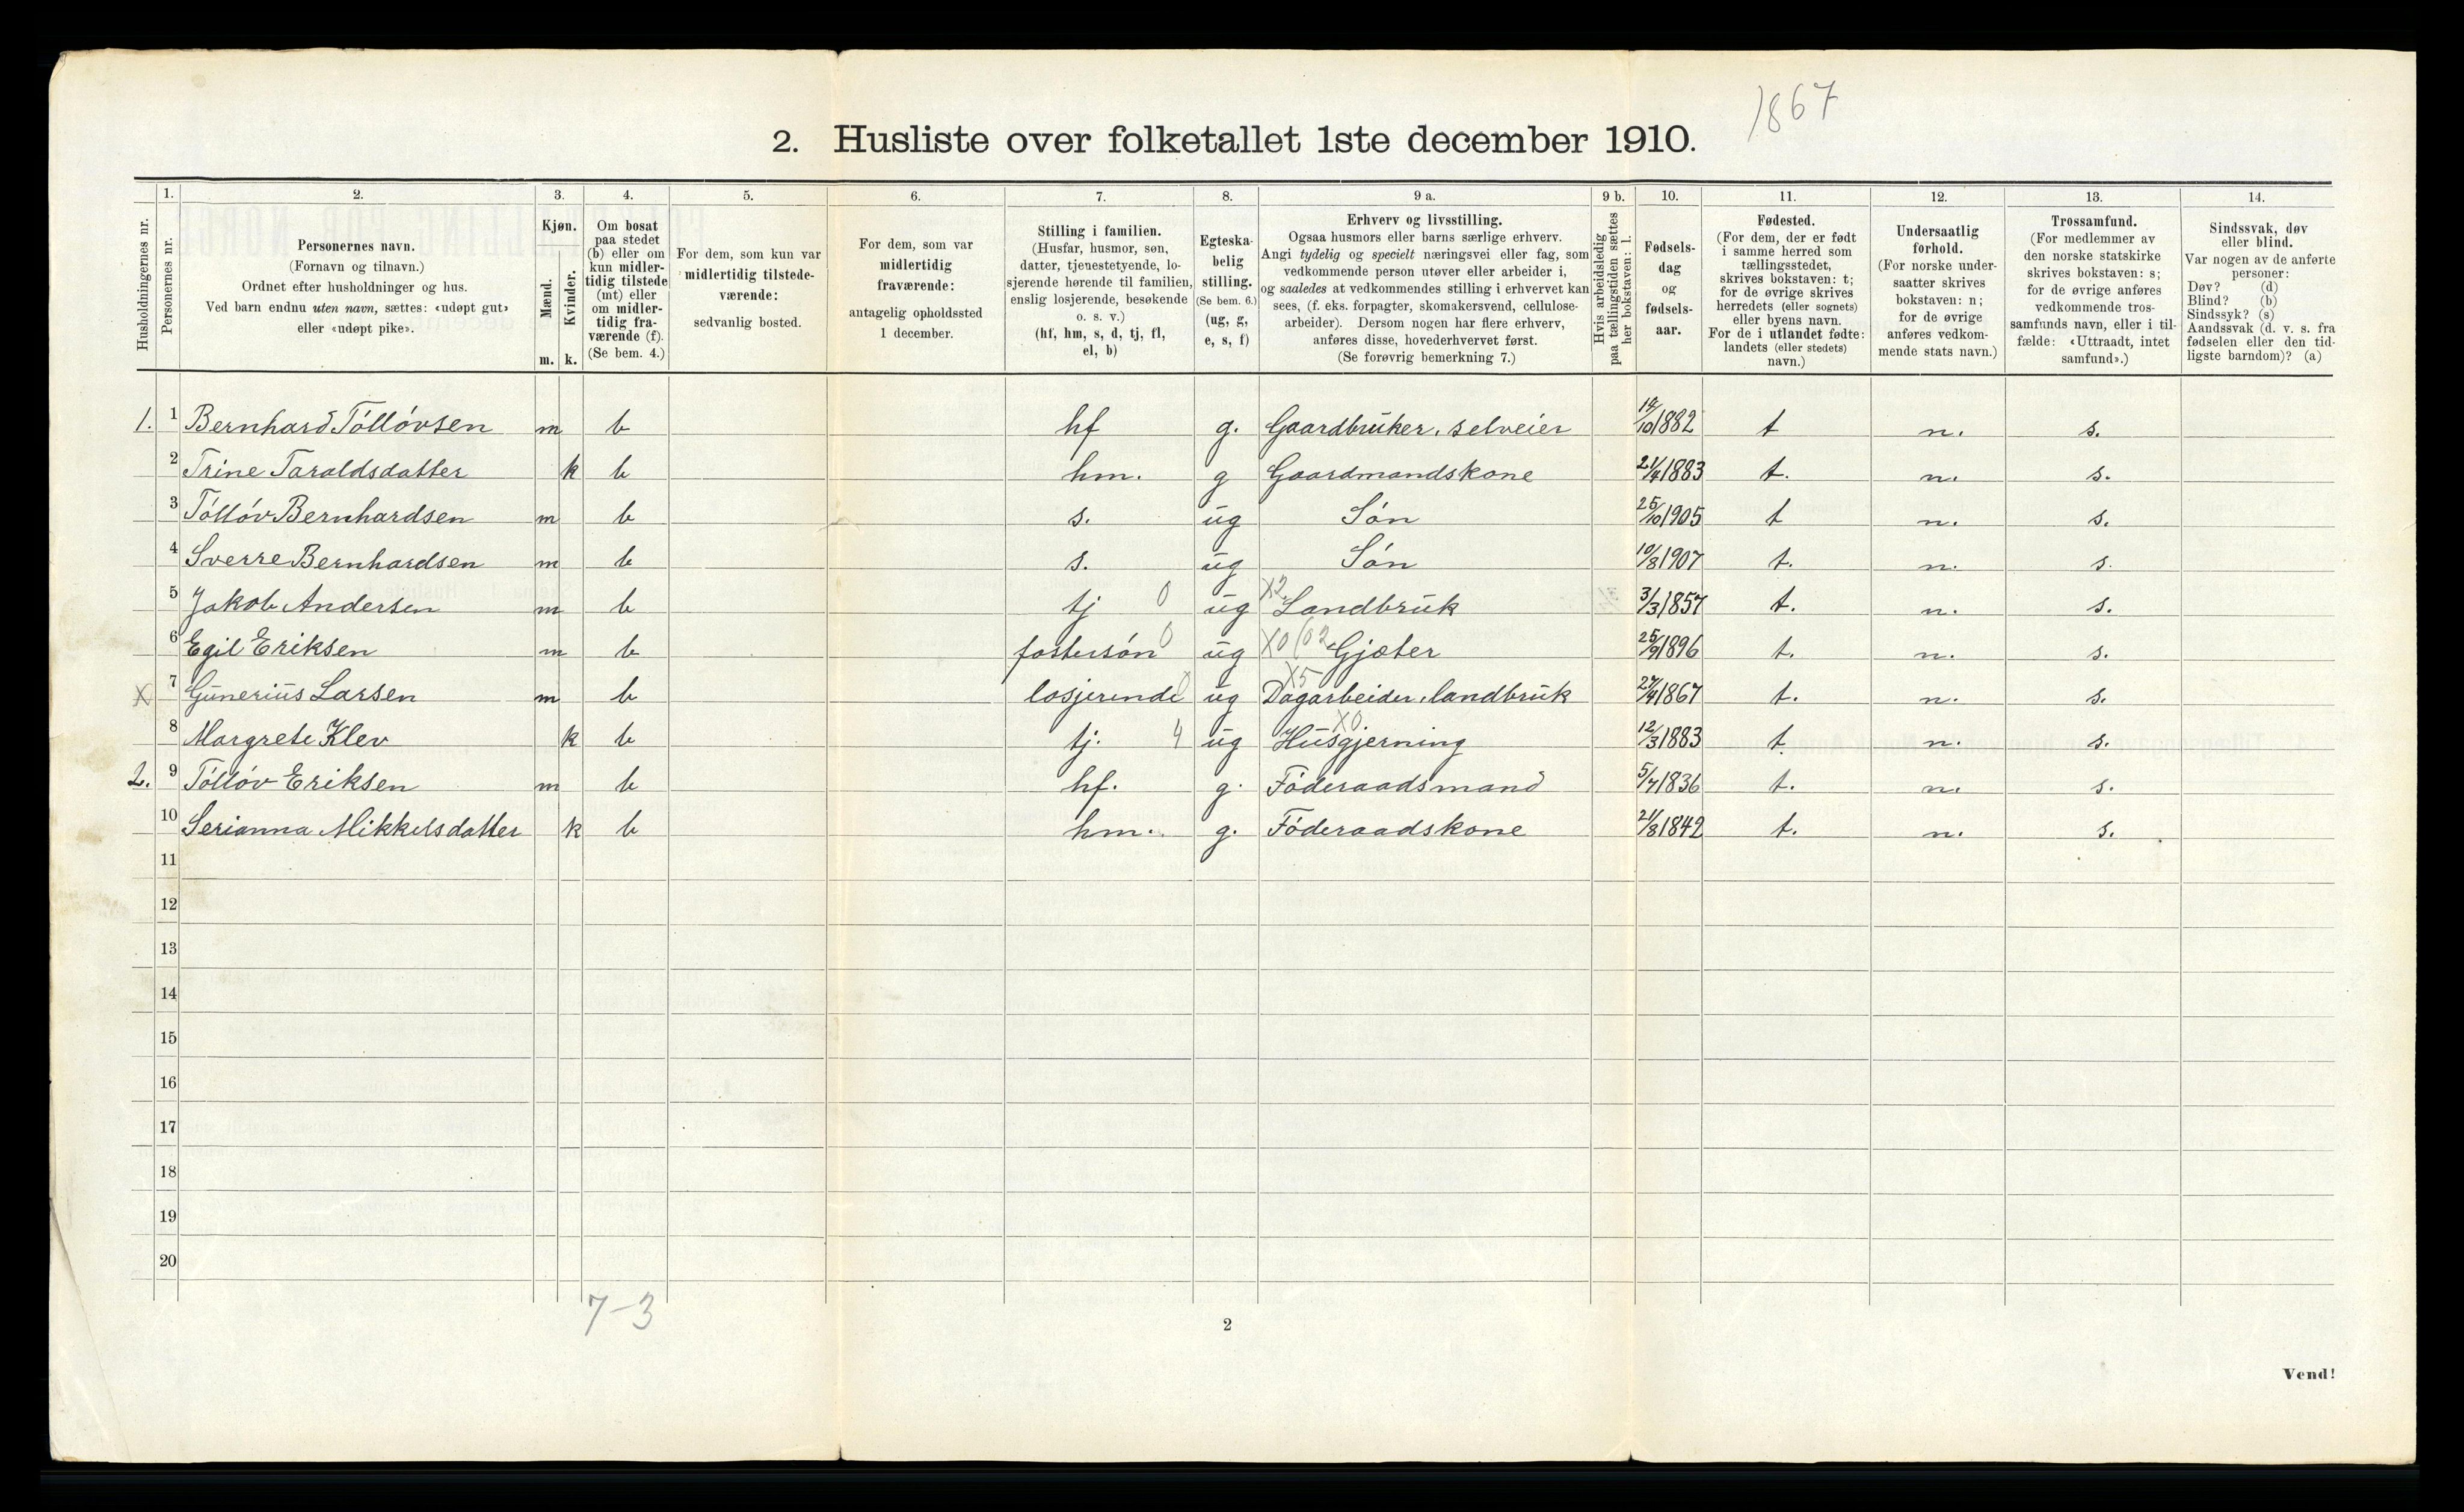 1867
2. Husliste over folketallet 1ste december 1910.
Husholdningernes nr.
1.
Personernes nr.
2.
Personernes navn.
(Fornavn og tilnavn.)
Ordnet efter husholdninger og hus.
Ved barn endnu uten navn, sættes: «udøpt gut»
eller «udøpt pike».
3.
Kjøn.
Mænd.
Kvinder.
m. k.
4.
Om bosat
paa stedet
(b) eller om
kun midler-
tidig tilstede
(mt) eller
om midler-
tidig fra-
værende (f).
(Se bem. 4.)
5.
For dem, som kun var
midlertidig tilstede-
værende:
sedvanlig bosted.
6.
For dem, som var
midlertidig
fraværende:
antagelig opholdssted
1 december.
7.
Stilling i familien.
(Husfar, husmor, søn,
datter, tjenestetyende, lo-
sjerende hørende til familien,
enslig losjerende, besøkende
o. s. v.)
(hf, hm, s, d, tj, fl,
el, b)
8.
Egteska-
belig
stilling.
(Se bem. 6.)
(ug, g,
e, s, f)
9 a.
Erhverv og livsstilling.
Ogsaa husmors eller barns særlige erhverv.
Angi tydelig og specielt næringsvei eller fag, som
vedkommende person utøver eller arbeider i,
og saaledes at vedkommendes stilling i erhvervet kan
sees, (f. eks. forpagter, skomakersvend, cellulose-
arbeider). Dersom nogen har flere erhverv,
anføres disse, hovederhvervet først.
(Se forøvrig bemerkning 7.)
9 b.
Hvis arbeidsledig
paa tællingstiden sættes
her bokstaven: l.
10.
Fødsels-
dag
og
fødsels-
aar.
11.
Fødested.
(For dem, der er født
i samme herred som
tællingsstedet,
skrives bokstaven: t;
for de øvrige skrives
herredets (eller sognets)
eller byens navn.
For de i utlandet fødte:
landets (eller stedets)
navn.)
12.
Undersaatlig
forhold.
(For norske under-
saatter skrives
bokstaven: n;
for de øvrige
anføres vedkom-
mende stats navn.)
13.
Trossamfund.
(For medlemmer av
den norske statskirke
skrives bokstaven: s;
for de øvrige anføres
vedkommende tros-
samfunds navn, eller i til-
fælde: «Uttraadt, intet
samfund».)
14.
Sindssvak, døv
eller blind.
Var nogen av de anførte
personer:
Døv? (d)
Blind? (b)
Sindssyk? (s)
Aandssvak (d. v. s. fra
fødselen eller den tid-
ligste barndom)? (a)
1. 1 Bernhard Tóllóvsen m b hf g. Gaardbruker, selveier 14/10 1882 t n. s.
2 Trine Taraldsdatter k b hm. g Gaardmandskone 21/4 1883 t. n. s.
3 Tóllóv Bernhardsen m b s. ug Són 25/10 1905 t n. s.
4 Sverre Bernhardsen m b s. ug Són 10/8 1907 t. n. s.
5 Jakob Andersen m b tj 0 ug X2 Landbruk 3/3 1857 t. n. s.
6 Egil Eriksen m b fostersón 0 ug X0/02 Gjæter 25/9 1896 t. n. s.
X 7 Gunerius Larsen m b losjerende 0 ug X5 Dagarbeider, landbruk 27/4 1867 t. n. s.
8 Margrete Klev k b tj. 4 ug X0 Husgjerning 12/3 1883 t. n. s.
2. 9 Tóllóv Eriksen m b hf. g. Fóderaadsmand 5/7 1836 t. n. s.
10 Serianna Mikkelsdatter k b hm. g. Fóderaadskone 21/8 1842 t. n. s.
11
12
13
14
15
16
17
18
19
20
7-3
2
Vend!